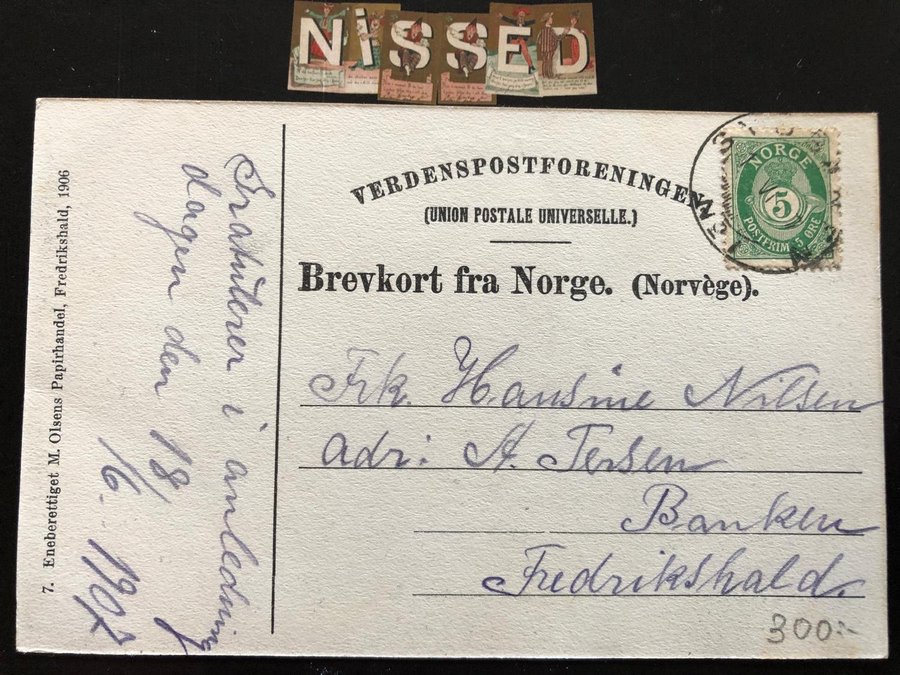 NISSED
VERDENSPOSTFORENINGEN
(UNION POSTALE UNIVERSELLE.)
Brevkort fra Norge. (Norvège).
NORGE
5
POSTFRIM 5 ØRE
7. Eneberettiget M. Olsens Papirhandel, Fredrikshald, 1906
Gratulerer i anledning
dagen den 18/
/6. 1907
Frk. Hansine Nilsen
adr: A. Tersen
Banken
Fredrikshald.
300:-